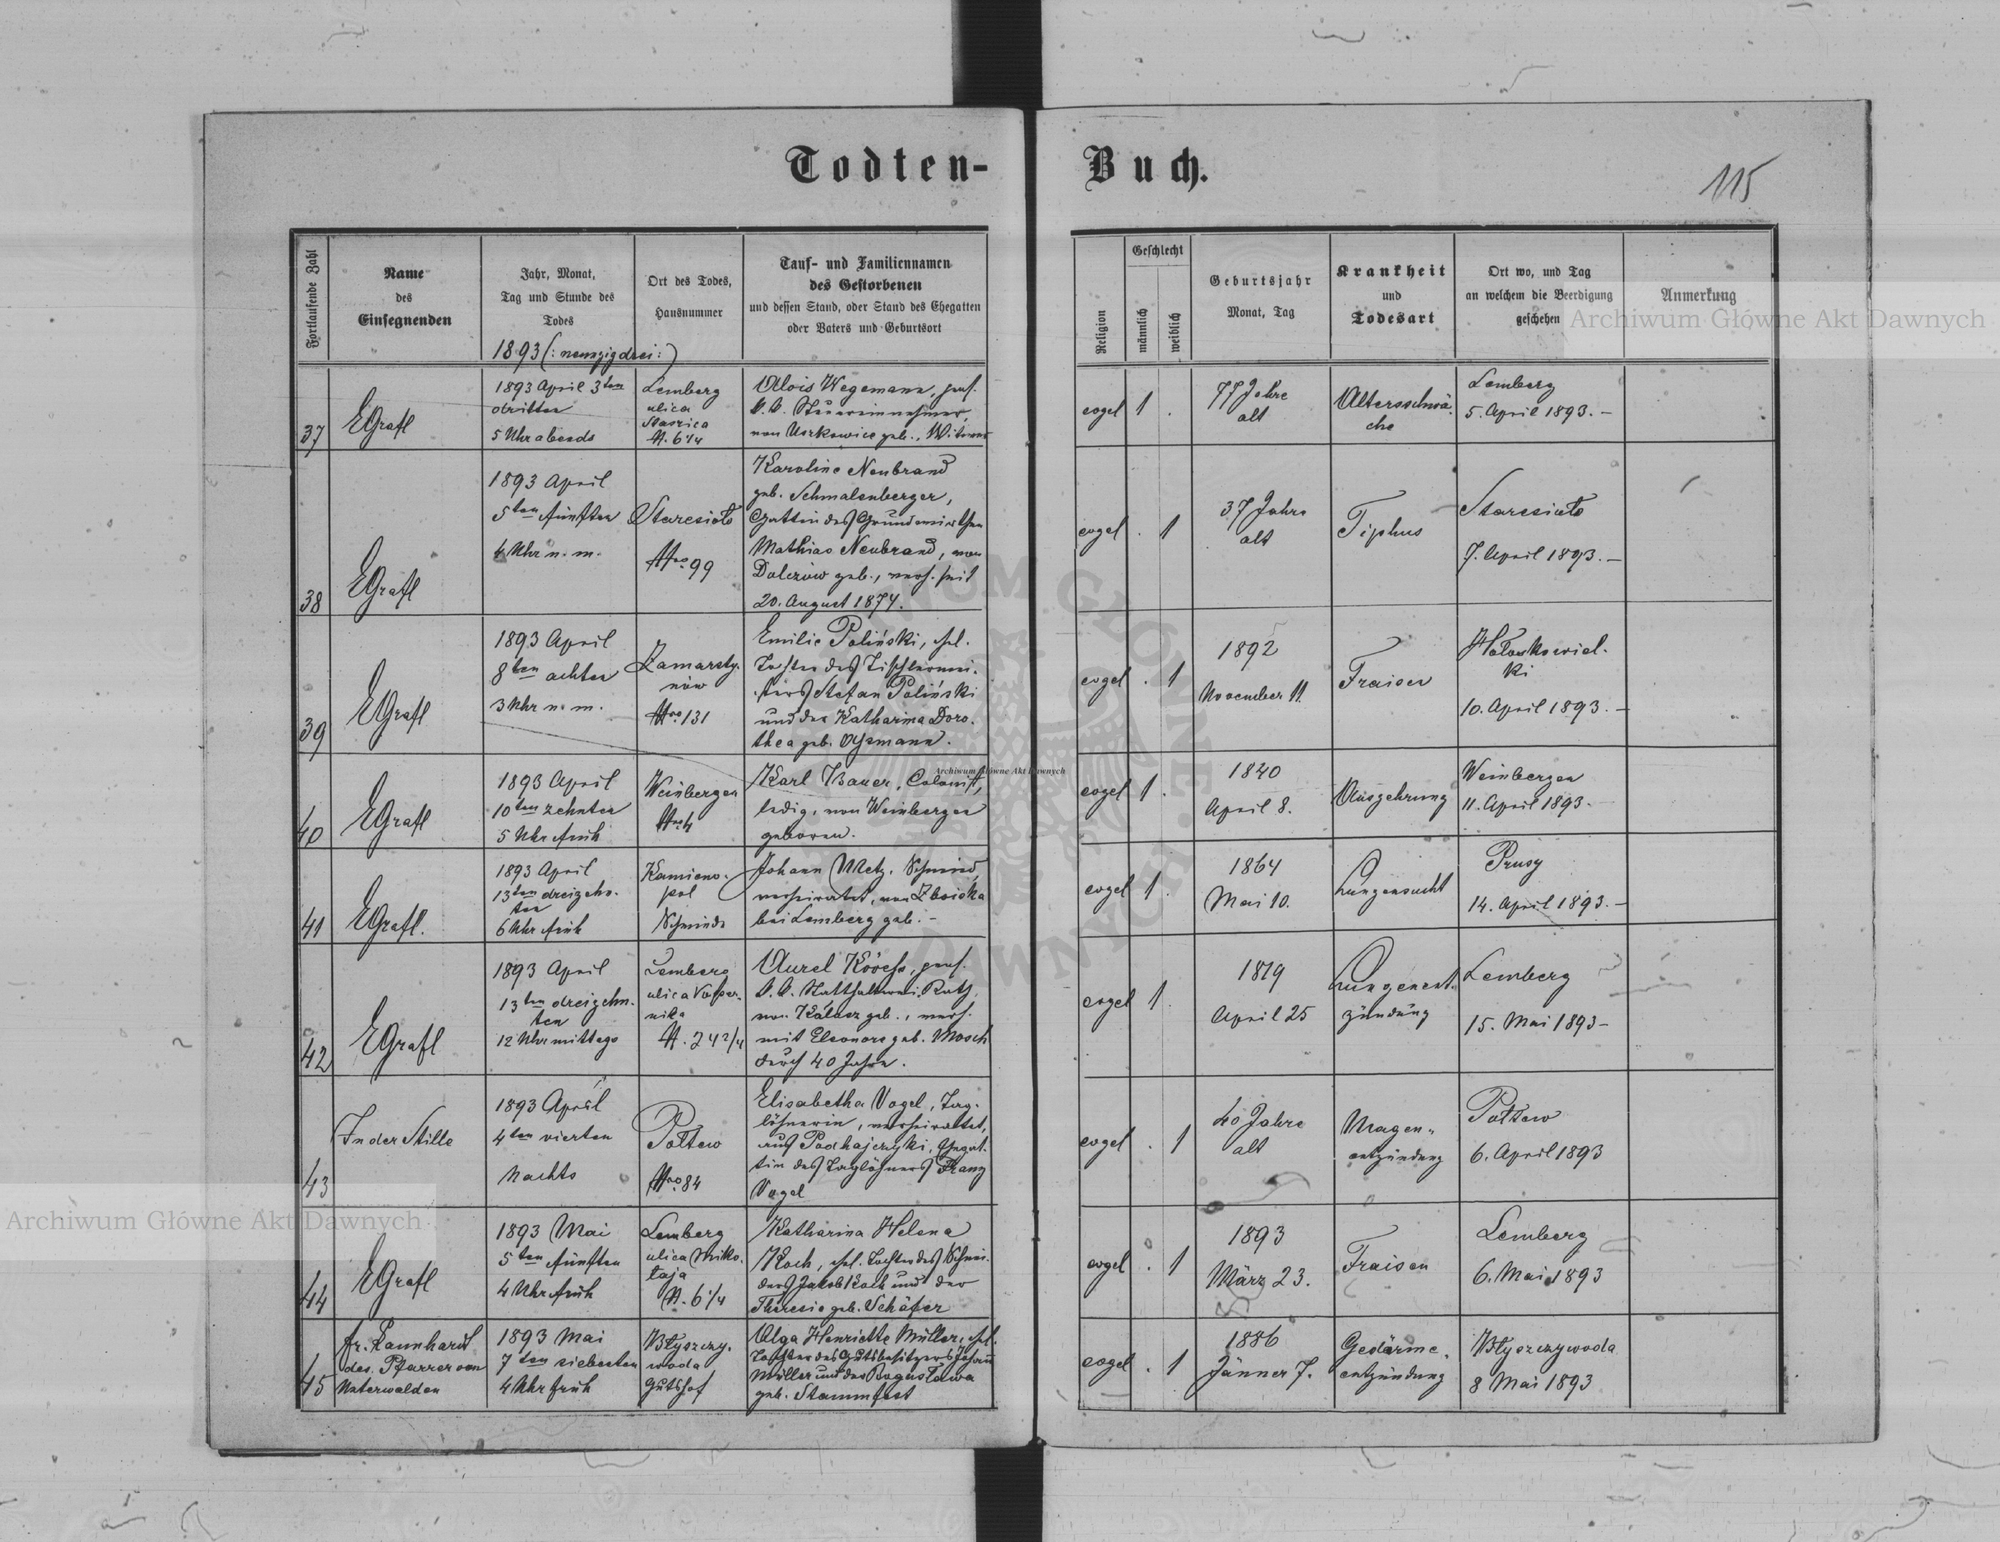 Todten-
Buch.
115
Fortlaufende Zahl
Name
des
Einsegnenden
Jahr, Monat,
Tag und Stunde des
Todes
1893 (: neunzigdrei :)
Ort des Todes,
Hausnummer
Tauf- und Familiennamen
des Gestorbenen
und dessen Stand, oder Stand des Ehegatten
oder Vaters und Geburtsort
Religion
Geschlecht
männlich
weiblich
Geburtsjahr
Monat, Tag
Krankheit
und
Todesart
Ort wo, und Tag
an welchem die Beerdigung
geschehen
Anmerkung
37
EGrafl
1893 April 3ten
dritten
5 Uhr abends
Lemberg
ulica
N. 6 1/4
Alois Wegemann, pens.
k.k. Steuereinnehmer,
von Uszkowice geb., Witwer
evgel
1 .
77 Jahre
alt
Altersschwä-
che
Lemberg
5. April 1893. –
38
EGrafl
1893 April
5ten fünften
4 Uhr n. m.
Staresioło
Nro 99
Karoline Neubrand
geb. Schmalenberger,
Gattin des Grundwirthen
Mathias Neubrand, von
Dolczów geb., verh. seit
20. August 1874.
evgel
. 1
37 Jahre
alt
Tiphus
Staresioło
7. April 1893. –
39
EGrafl
1893 April
8ten achten
3 Uhr n. m.
Zamarsty-
nów
Nro 131
Emilie Poliński, ehel.
Tochter des Tischlermei-
sters Stefan Poliński
und der Katharina Doro-
thea geb.
evgel
. 1
1892
November 11.
Fraisen
Hołoskowiel-
ki
10. April 1893. –
40
EGrafl
1893 April
10ten zehnten
5 Uhr früh
Weinbergen
Nro 4
Karl Bauer, Colonist,
ledig, von Weinbergen
geboren.
evgel
1 .
1840
April 8.
Auszehrung
Weinbergen
11. April 1893. –
41
EGrafl.
1893 April
13ten dreizehn-
ten
6 Uhr früh
Kamieno-
pol
Schmiede
Johann Metz, Schmied,
verheiratet, von Zboiska
bei Lemberg geb. –
evgel
1 .
1864
Mai 10.
Lungensucht
Prusy
14. April 1893. –
42
EGrafl
1893 April
13ten dreizehn-
ten
12 Uhr mittags
Lemberg
ulica
N. 24 2/4
Aurel pens.
k.k. Statthalterei Rath,
von geb., verh.
mit Eleonore geb. Mosch
durch 40 Jahre.
evgel
1 .
1819
April 25
Lungenent-
zündung
Lemberg
15. Mai 1893 –
43
In der Stille
1893 April
4ten vierten
Nachts
Połtew
Nro 84
Elisabetha Vogel, Tag-
löhnerin, verheirathet,
aus Podhajczyki, Ehegat-
tin des Taglöhners Franz
Vogel
evgel
. 1
40 Jahre
alt
Magen-
entzündung
Połtew
6. April 1893
44
EGrafl
1893 Mai
5ten fünften
4 Uhr früh
Lemberg
ulica Miko-
łaja
N. 6 1/4
Katharina Helena
Koch, ehel. Tochter des Schnei-
ders Jakob Koch und der
Theresie geb. Schäfer
evgel
. 1
1893
März 23.
Fraisen
Lemberg
6. Mai 1893
45
fr. Kaunhardt
des. Pfarrer von
Unterwalden
1893 Mai
7ten siebenten
4 Uhr früh
Błyszczy-
woda
Gutshof
Olga Henriette Müller, ehel.
Tochter des Gutsbesitzers Johann
Müller und der Bogusława
geb. Stammfest
evgel
. 1
1886
Jänner 7.
Gedärme-
entzündung
Błyszczywoda
8 Mai 1893
Archiwum Główne Akt Dawnych
Archiwum Główne Akt Dawnych
Archiwum Główne Akt Dawnych